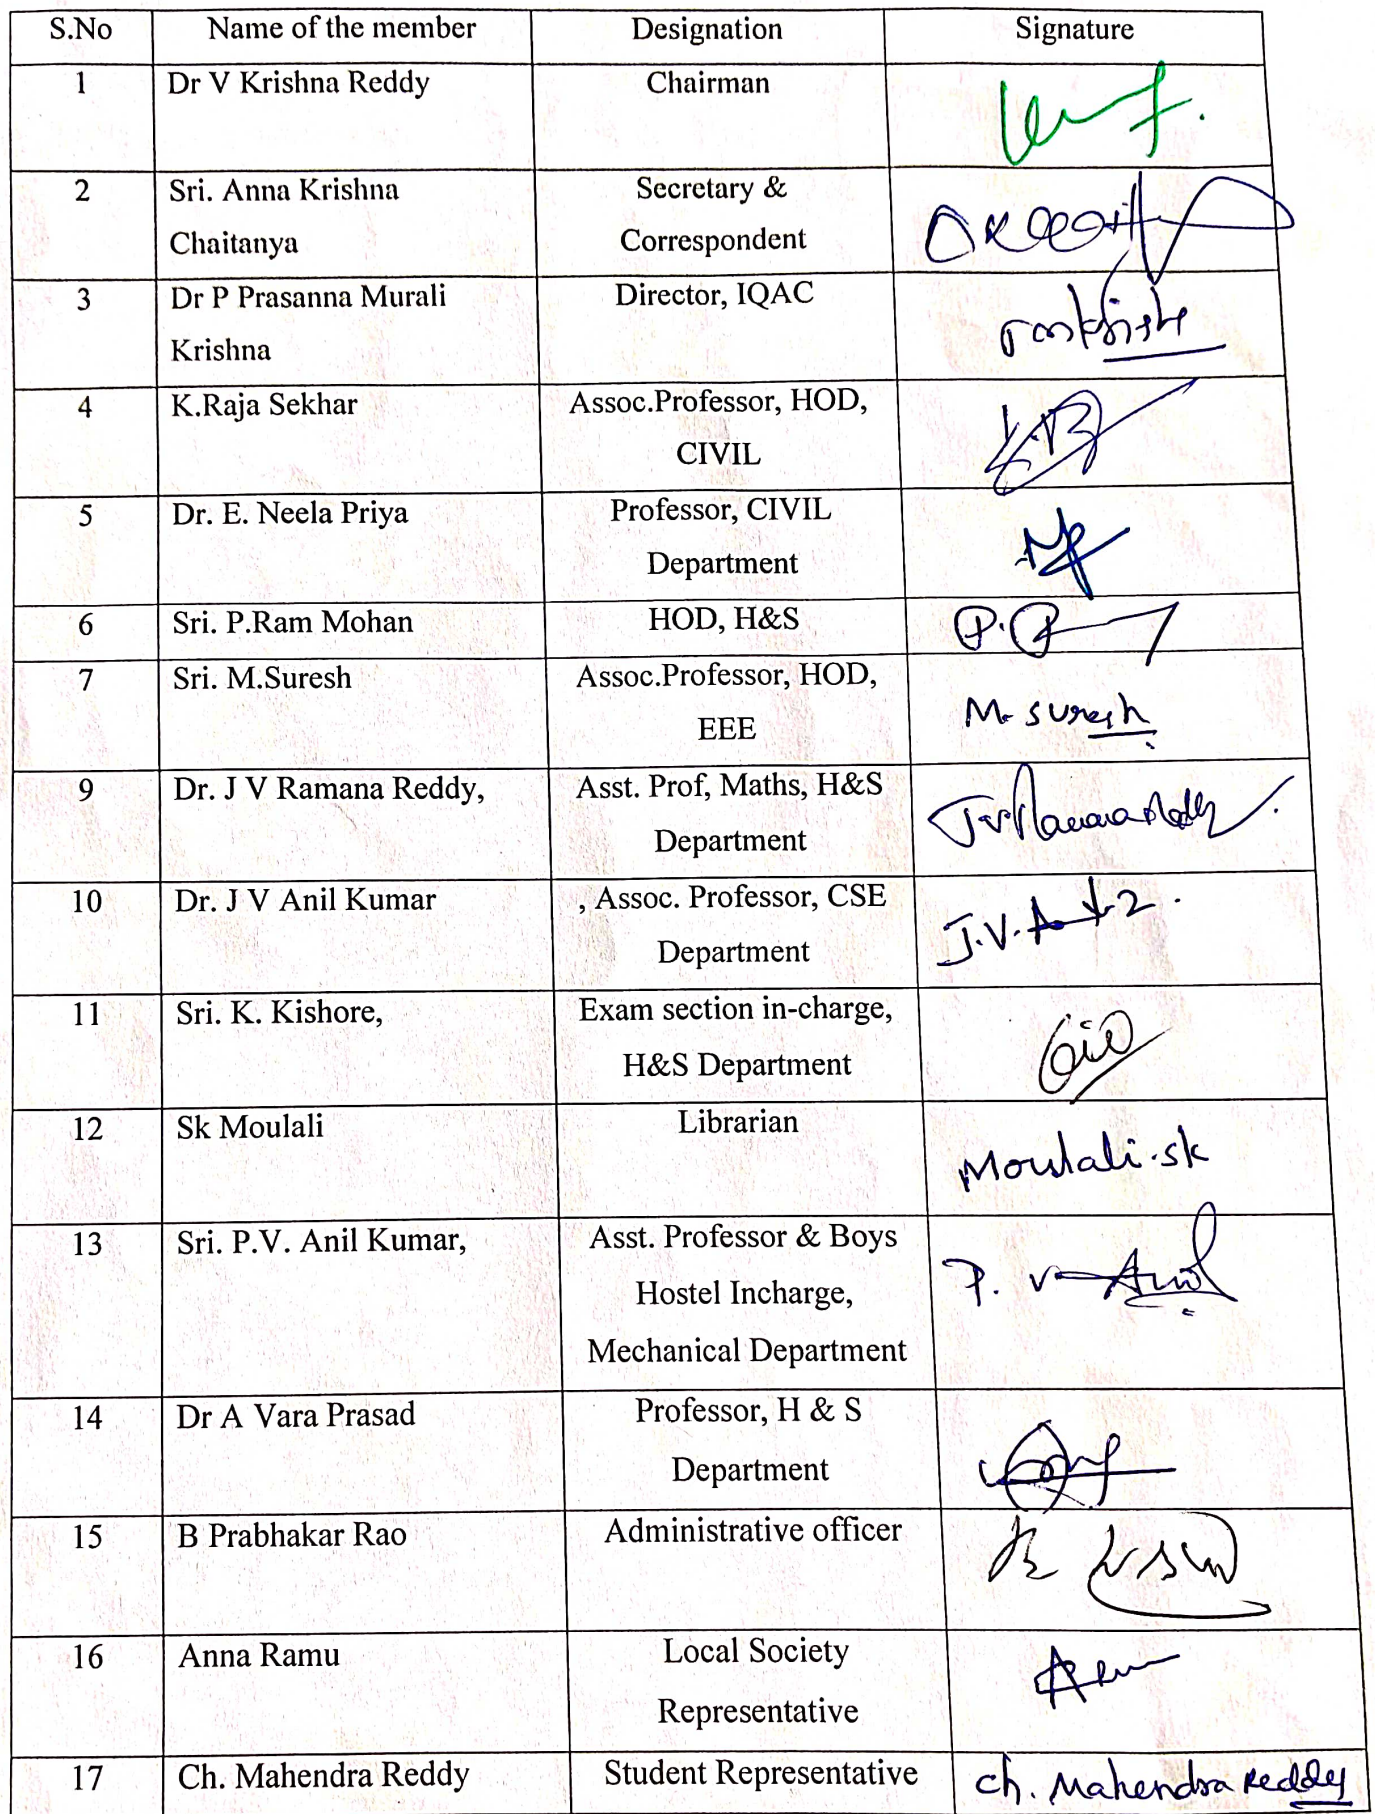 S.No Name of the member Designation Signature
1 Dr V Krishna Reddy Chairman
2 Sri. Anna Krishna Secretary &
Chaitanya Correspondent
3 Dr P Prasanna Murali Director, IQAC
Krishna
4 K.Raja Sekhar Assoc.Professor, HOD,
CIVIL
5 Dr. E. Neela Priya Professor, CIVIL
Department
6 Sri. P.Ram Mohan HOD, H&S
7 Sri. M.Suresh Assoc.Professor, HOD,
EEE M. Suresh
9 Dr. J V Ramana Reddy, Asst. Prof, Maths, H&S
Department JV Ramana Reddy
10 Dr. J V Anil Kumar , Assoc. Professor, CSE
Department
11 Sri. K. Kishore, Exam section in-charge,
H&S Department
12 Sk Moulali Librarian
Moulali.sk
13 Sri. P.V. Anil Kumar, Asst. Professor & Boys
Hostel Incharge, P. V Anil
Mechanical Department
14 Dr A Vara Prasad Professor, H & S
Department
15 B Prabhakar Rao Administrative officer
16 Anna Ramu Local Society
Representative
17 Ch. Mahendra Reddy Student Representative Ch. Mahendra Reddy